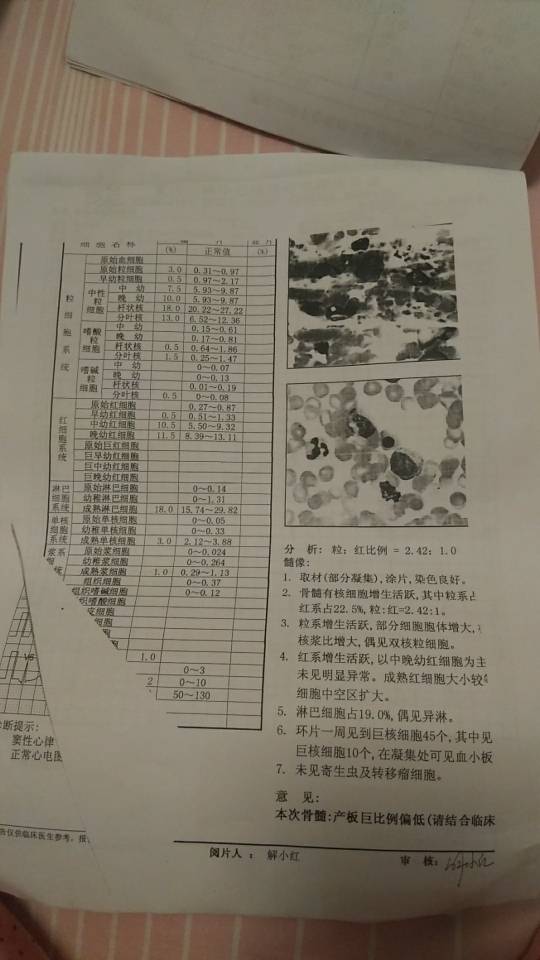 细胞名称
(%) 正常值 (%)
粒细胞系统
原始血细胞
原始粒细胞 3.0 0.31～0.97
早幼粒细胞 0.5 0.97～2.17
中性粒细胞
中幼 7.5 5.93～9.87
晚幼 10.0 5.93～9.87
杆状核 18.0 20.22～27.22
分叶核 13.0 6.52～12.36
嗜酸粒细胞
中幼 0.15～0.61
晚幼 0.17～0.81
杆状核 0.5 0.64～1.86
分叶核 1.5 0.25～1.47
嗜碱粒细胞
中幼 0～0.07
晚幼 0～0.13
杆状核 0.01～0.19
分叶核 0.5 0～0.08
红细胞系统
原始红细胞 0.27～0.87
早幼红细胞 0.5 0.51～1.33
中幼红细胞 10.5 5.50～9.32
晚幼红细胞 11.5 8.39～13.11
原始巨红细胞
巨早幼红细胞
巨中幼红细胞
巨晚幼红细胞
淋巴细胞系统
原始淋巴细胞 0～0.14
幼稚淋巴细胞 0～1.31
成熟淋巴细胞 18.0 15.74～29.82
单核细胞系统
原始单核细胞 0～0.05
幼稚单核细胞 0～0.33
成熟单核细胞 3.0 2.12～3.88
浆系
原始浆细胞 0～0.024
幼稚浆细胞 0～0.264
成熟浆细胞 1.0 0.29～1.13
组织细胞 0～0.37
组织嗜碱细胞 0～0.12
织嗜酸细胞
细胞
胞
1.0
0～3
2 0～10
50～130
V5
诊断提示:
窦性心律
正常心电图
告仅供临床医生参考，报
分 析: 粒: 红比例 = 2.42: 1.0
髓像:
1. 取材(部分凝集),涂片,染色良好。
2. 骨髓有核细胞增生活跃,其中粒系占
红系占22.5%,粒:红=2.42:1。
3. 粒系增生活跃,部分细胞胞体增大,
核浆比增大,偶见双核粒细胞。
4. 红系增生活跃,以中晚幼红细胞为主
未见明显异常。成熟红细胞大小较
细胞中空区扩大。
5. 淋巴细胞占19.0%,偶见异淋。
6. 环片一周见到巨核细胞45个,其中见
巨核细胞10个,在凝集处可见血小板
7. 未见寄生虫及转移瘤细胞。
意 见:
本次骨髓:产板巨比例偏低(请结合临床
阅片人: 解小红
审 核: